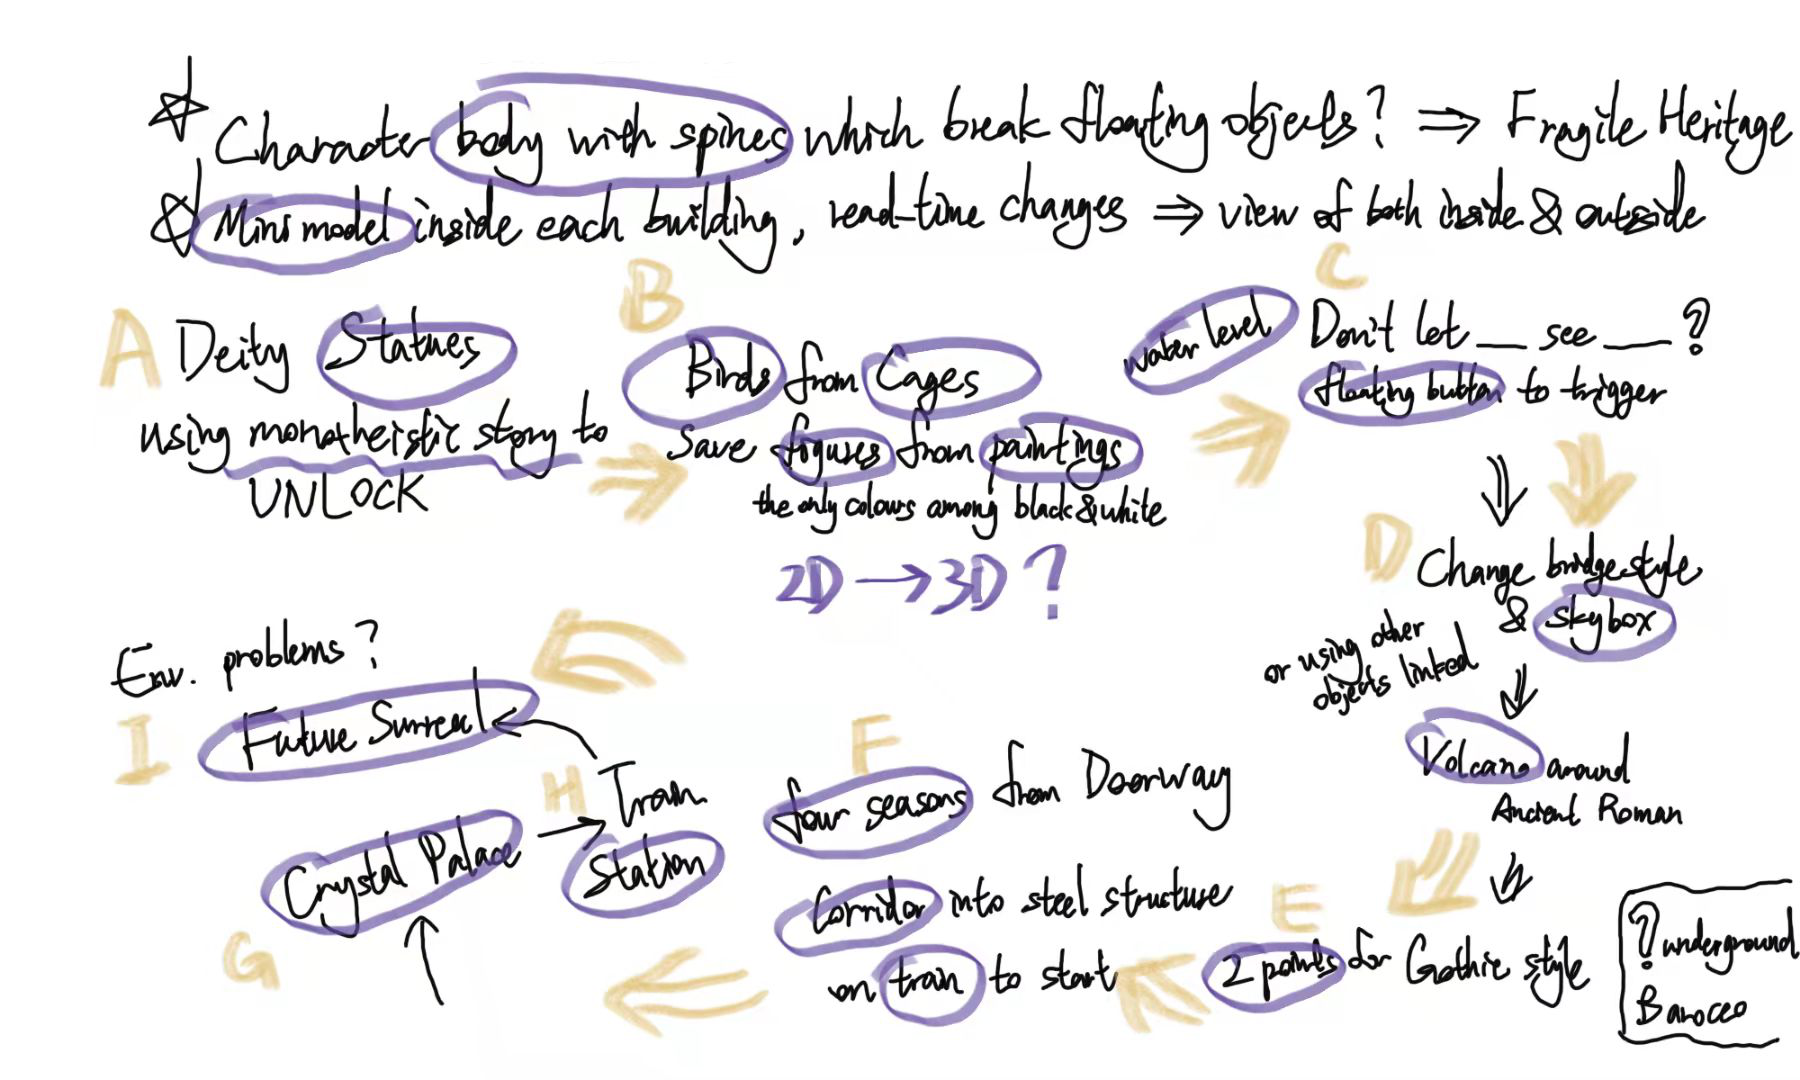 Character body with spines which break floating objects? ⇒ Fragile Heritage
Mini model inside each building, read-time changes ⇒ view of both inside & outside
A
Deity Statues
using monotheistic story to
UNLOCK
B
Birds from Cages
Save figures from paintings
the only colours among black & white
2D → 3D ?
water level
C
Don't let __ see __ ?
floating button to trigger
D
Change bridge style
& skybox
or using other
objects linked
Volcano around
Ancient Roman
E
2 points for Gothic style
? underground
Barocco
F
four seasons from Doorway
Corridor into steel structure
on train to start
G
Crystal Palace
H
Train
Station
I
Env. problems?
Future Surreal